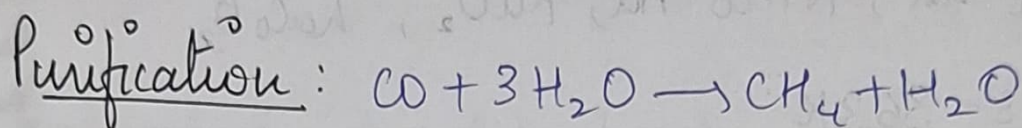 Purification : CO + 3H₂O → CH₄ + H₂O